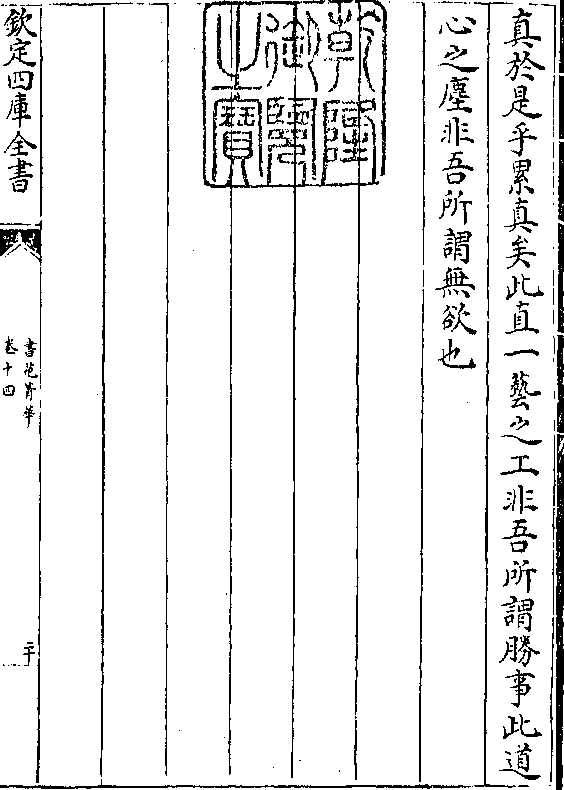 真於是乎累真矣此直一藝之工非吾所謂勝事此道
心之塵非吾所謂無欲也
乾隆
御覽
之寶
欽定四庫全書
書苑菁華
卷十四
二十